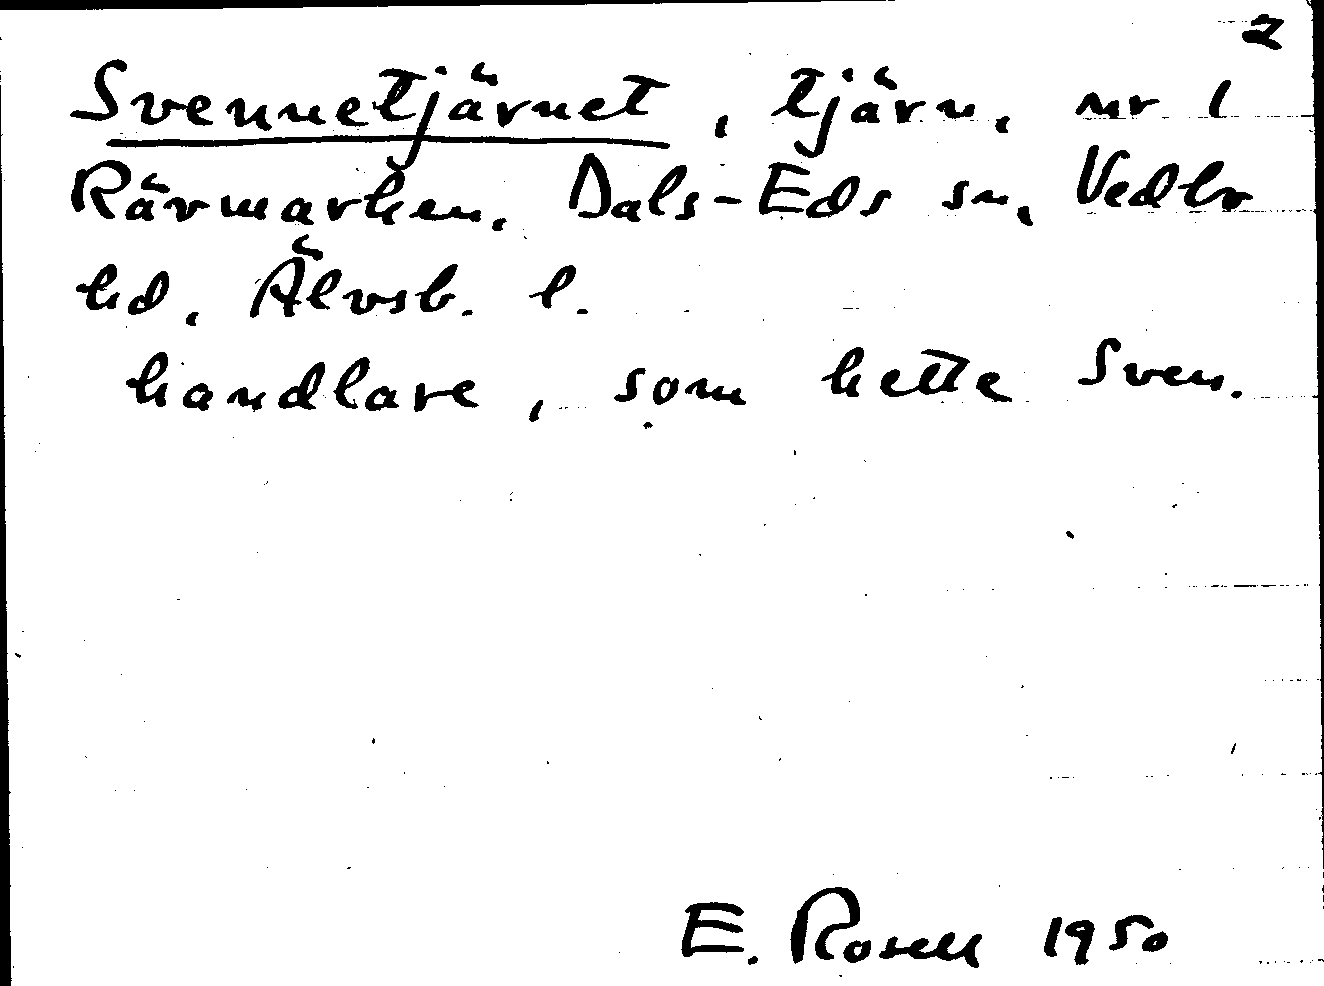 2
Svennetjärnet, tjärn, nr 1
Rävmarken, Dals-Eds sn, Vedbo
hd, Älvsb. l.
handlare, som hette Sven.
E. Rosell 1950